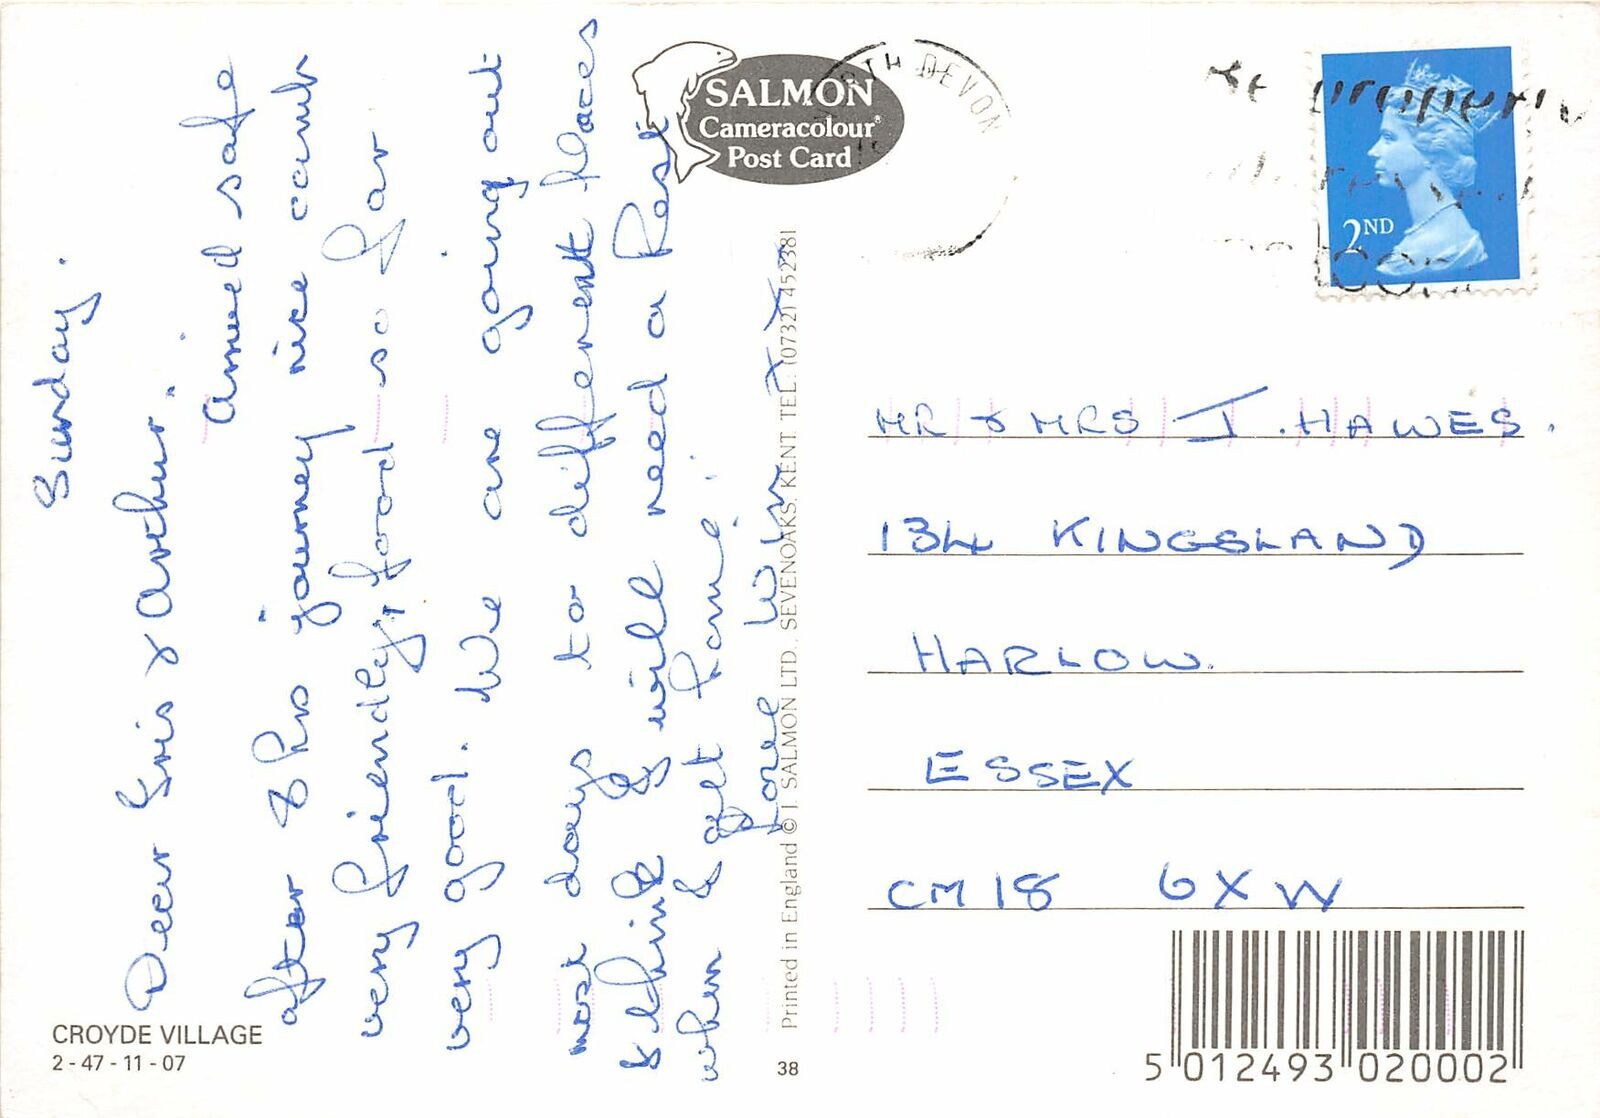 Sunday.
Dear Iris & Arthur.
Arrived safe
after 8 hrs journey nice comb
very friendly, food so far
very good. We are going out
most days to different places
I think I will need a Rest
when I get home!
Love Win x x x
CROYDE VILLAGE
2 - 47 - 11 - 07
SALMON
Cameracolour®
Post Card
Printed in England © J. SALMON LTD., SEVENOAKS, KENT. TEL: (0732) 452381
38
NORTH DEVON
2ND
MR & MRS J. HAWES.
134 KINGSLAND
HARLOW.
ESSEX
CM18 6XW
5 012493 020002